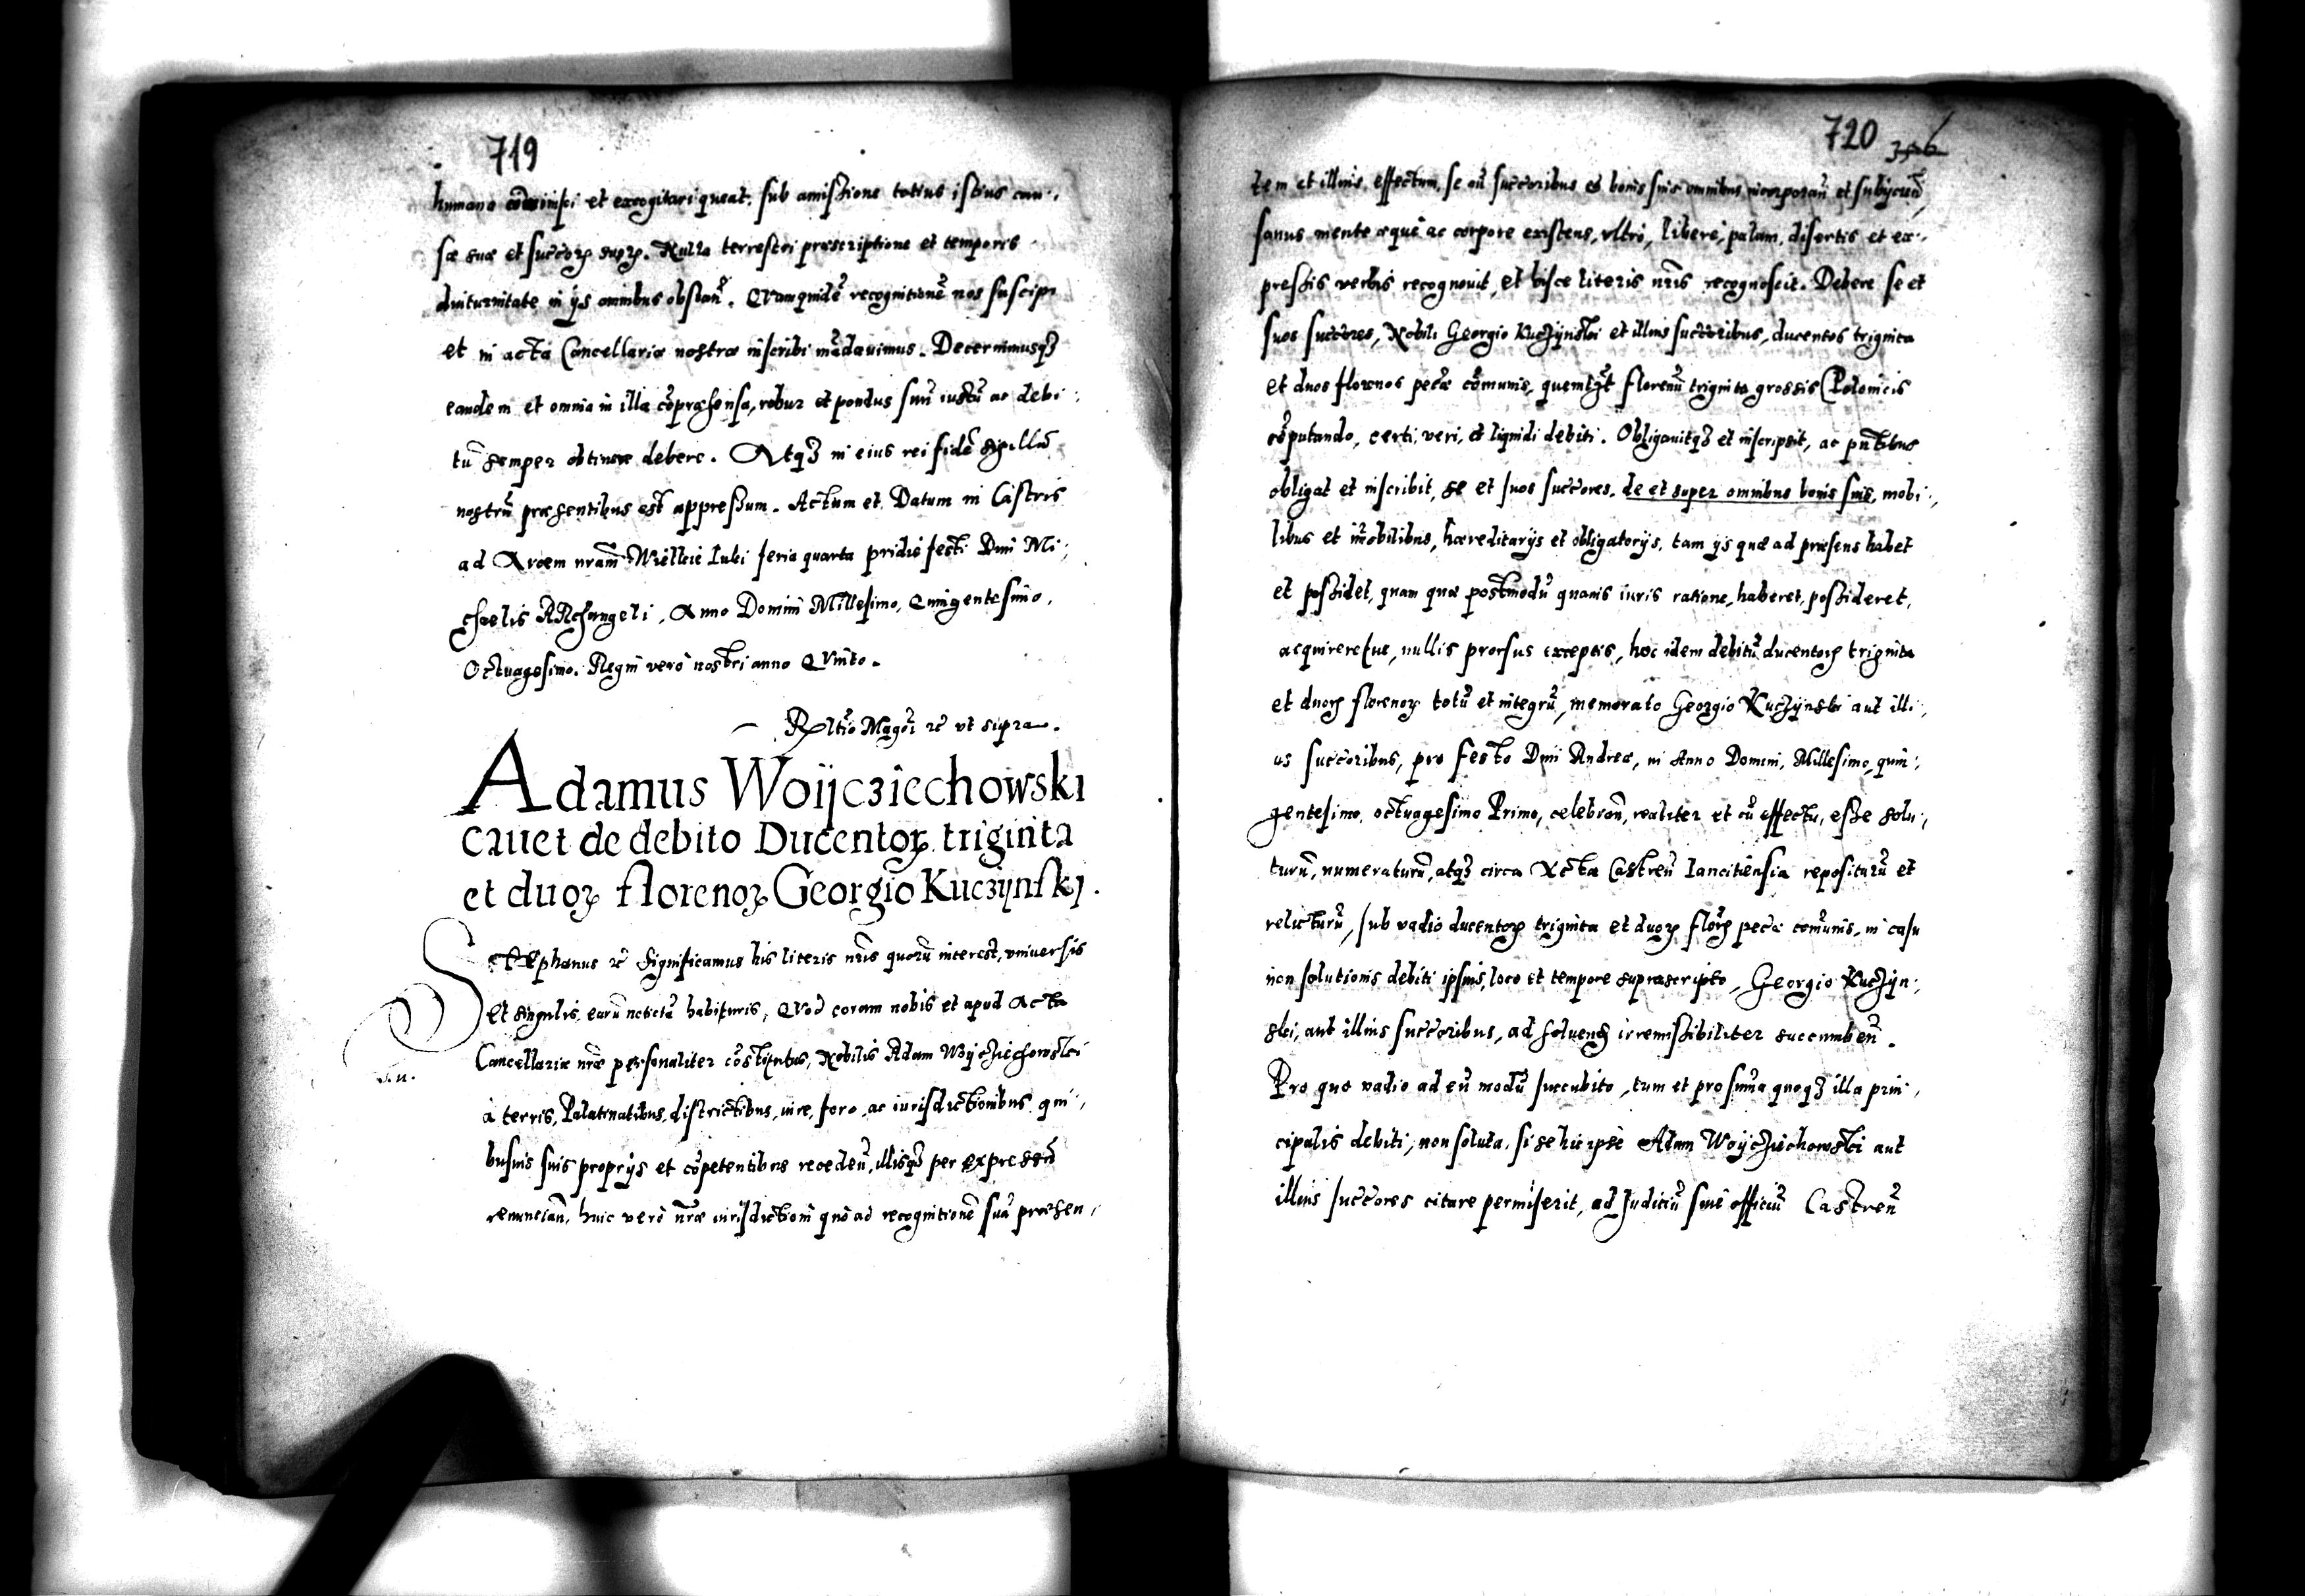 719
humano comminisci et excogitari queat. sub amissione totius istius cau,
sæ suæ et succoꝝ suoꝝ. Nulla terrestri præscriptione et temporis
diuturnitate in ijs omnibus obstañ. Quamquidē recognitionē nos suscipi
et in acta Cancellariæ nostræ inscribi mādauimus. Decernimusqꝫ
eandem et omnia in illa cōpræhensa, robur et pondus suū iustū ac debi,
tū semper obtinere debere. Atqꝫ in eius rei fidē sigillū
nostrū præsentibus est appressum. Actum et Datum in Castris
ad Arcem nram̄ Wielkie Luki feria quarta pridie festi Dni Mi,
chaelis ARchangeli, Anno Domini Millesimo, Quingentesimo,
Octuagesimo. Regni vero nostri anno Quinto.
Rltio Magci rc̄ vt supra.
Adamus Woijcziechowski
cauet de debito Ducentoꝝ triginta
et duoꝝ florenoꝝ Georgio Kuczijnskj.
STEphanus rc̄ Significamus his literis nr̄is quorū interest, vniuersis
et singulis, earū noticiā habituris, Quod coram nobis et apud Acta
Cancellariæ nr̄æ personaliter cōstitutus, Nobilis Adam Woijcziechowski
à terris, Palatinatibus, districtibus, iure, foro, ac iurisdictionibus qui,
busuis suis proprijs et cōpetentibus recedeñ, illisqꝫ per expresseñ
renuncian̄, huic verò nr̄æ iurisdictioni quo ad recognitionē suā præsen,
720
356
tem et illius effectum, se cū succoribus et bonis suis omnibus incorporañ et subijcieñ,
sanus mente æque ac corpore existens, vltro, liberè, palam, disertis et ex,
pressis verbis recognouit, et hisce literis nr̄is recognoscit. Debere se et
suos succores, Nobili Georgio Kuczijnski et illius succoribus, ducentos triginta
et duos florenos pecæ cōmunis, quemlꝫt florenū triginta grossis Polonicis
cōputando, certi, veri, et liquidi debiti. Obligauitqꝫ et inscripsit, ac pn̄tibus
obligat et inscribit, se et suos succores. de et super omnibus bonis suis, mobi,
libus et im̄obilibus, hæreditarijs et obligatorijs, tam ijs quæ ad præsens habet
et possidet, quam quæ postmodū quauis iuris ratione, haberet, possideret,
acquireretue, nullis prorsus exceptis, hoc idem debitū ducentoꝝ triginta
et duoꝝ florenoꝝ totū et integrū, memorato Georgio Kuczijnski aut illi,
us succoribus, pro festo Dni Andreæ, in Anno Domini, Millesimo, quin,
gentesimo, octuagesimo Primo, celebrañ, realiter et cū effectu, esse solu,
turū, numeraturū, atqꝫ circa Acta Castreñ Lancitiensia repositurū et
relicturū, sub vadio ducentoꝝ triginta et duoꝝ floꝝ pecæ comunis, in casu
non solutionis debiti ipsius, loco et tempore supræscripto, Georgio Kuczijn,
ski, aut illius succoribus, ad soluend irremissibiliter succumbeñ.
Pro quo vadio ad eū modū succubito, tum et pro sum̄a quoqꝫ illa prin,
cipalis debiti, non soluta, si se hic ipse Adam Woijcziechowski aut
illius succores citare permiserit, ad Iudiciū siue officiū Castreñ